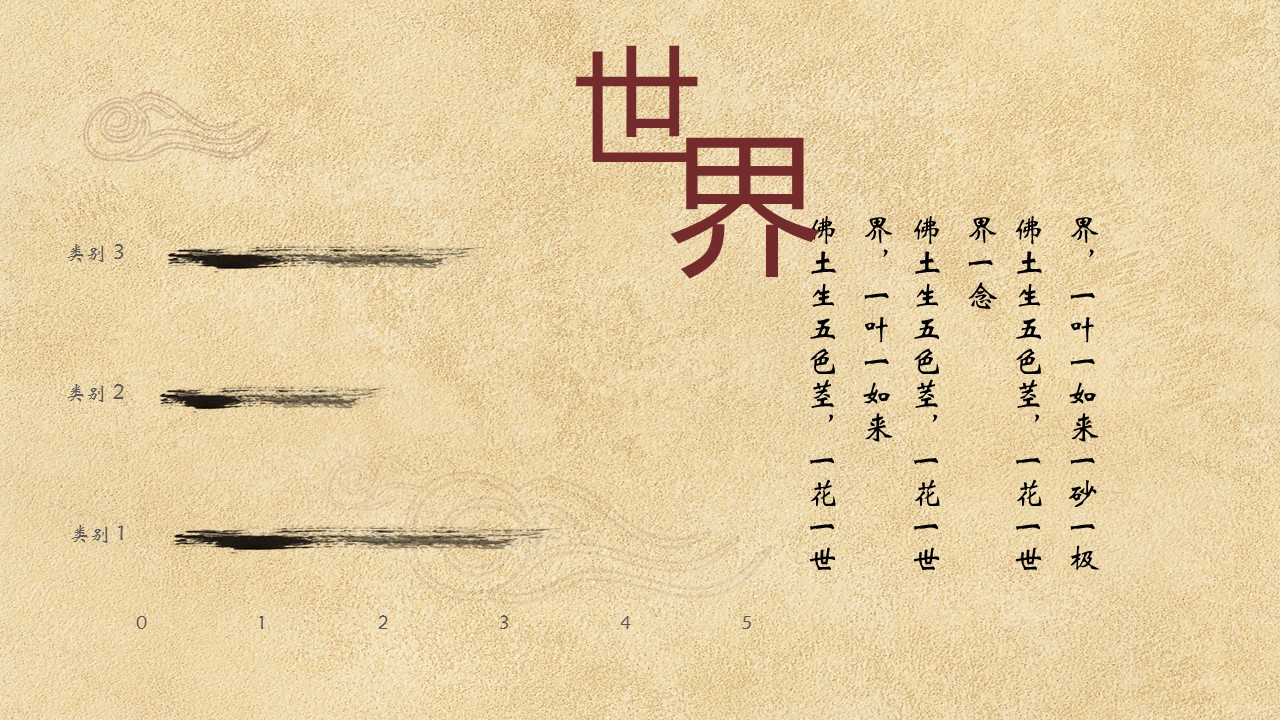 世界
佛土生五色茎，一花一世
界，一叶一如来
佛土生五色茎，一花一世
界一念
佛土生五色茎，一花一世
界，一叶一如来一砂一极
类别 3
类别 2
类别 1
0 1 2 3 4 5